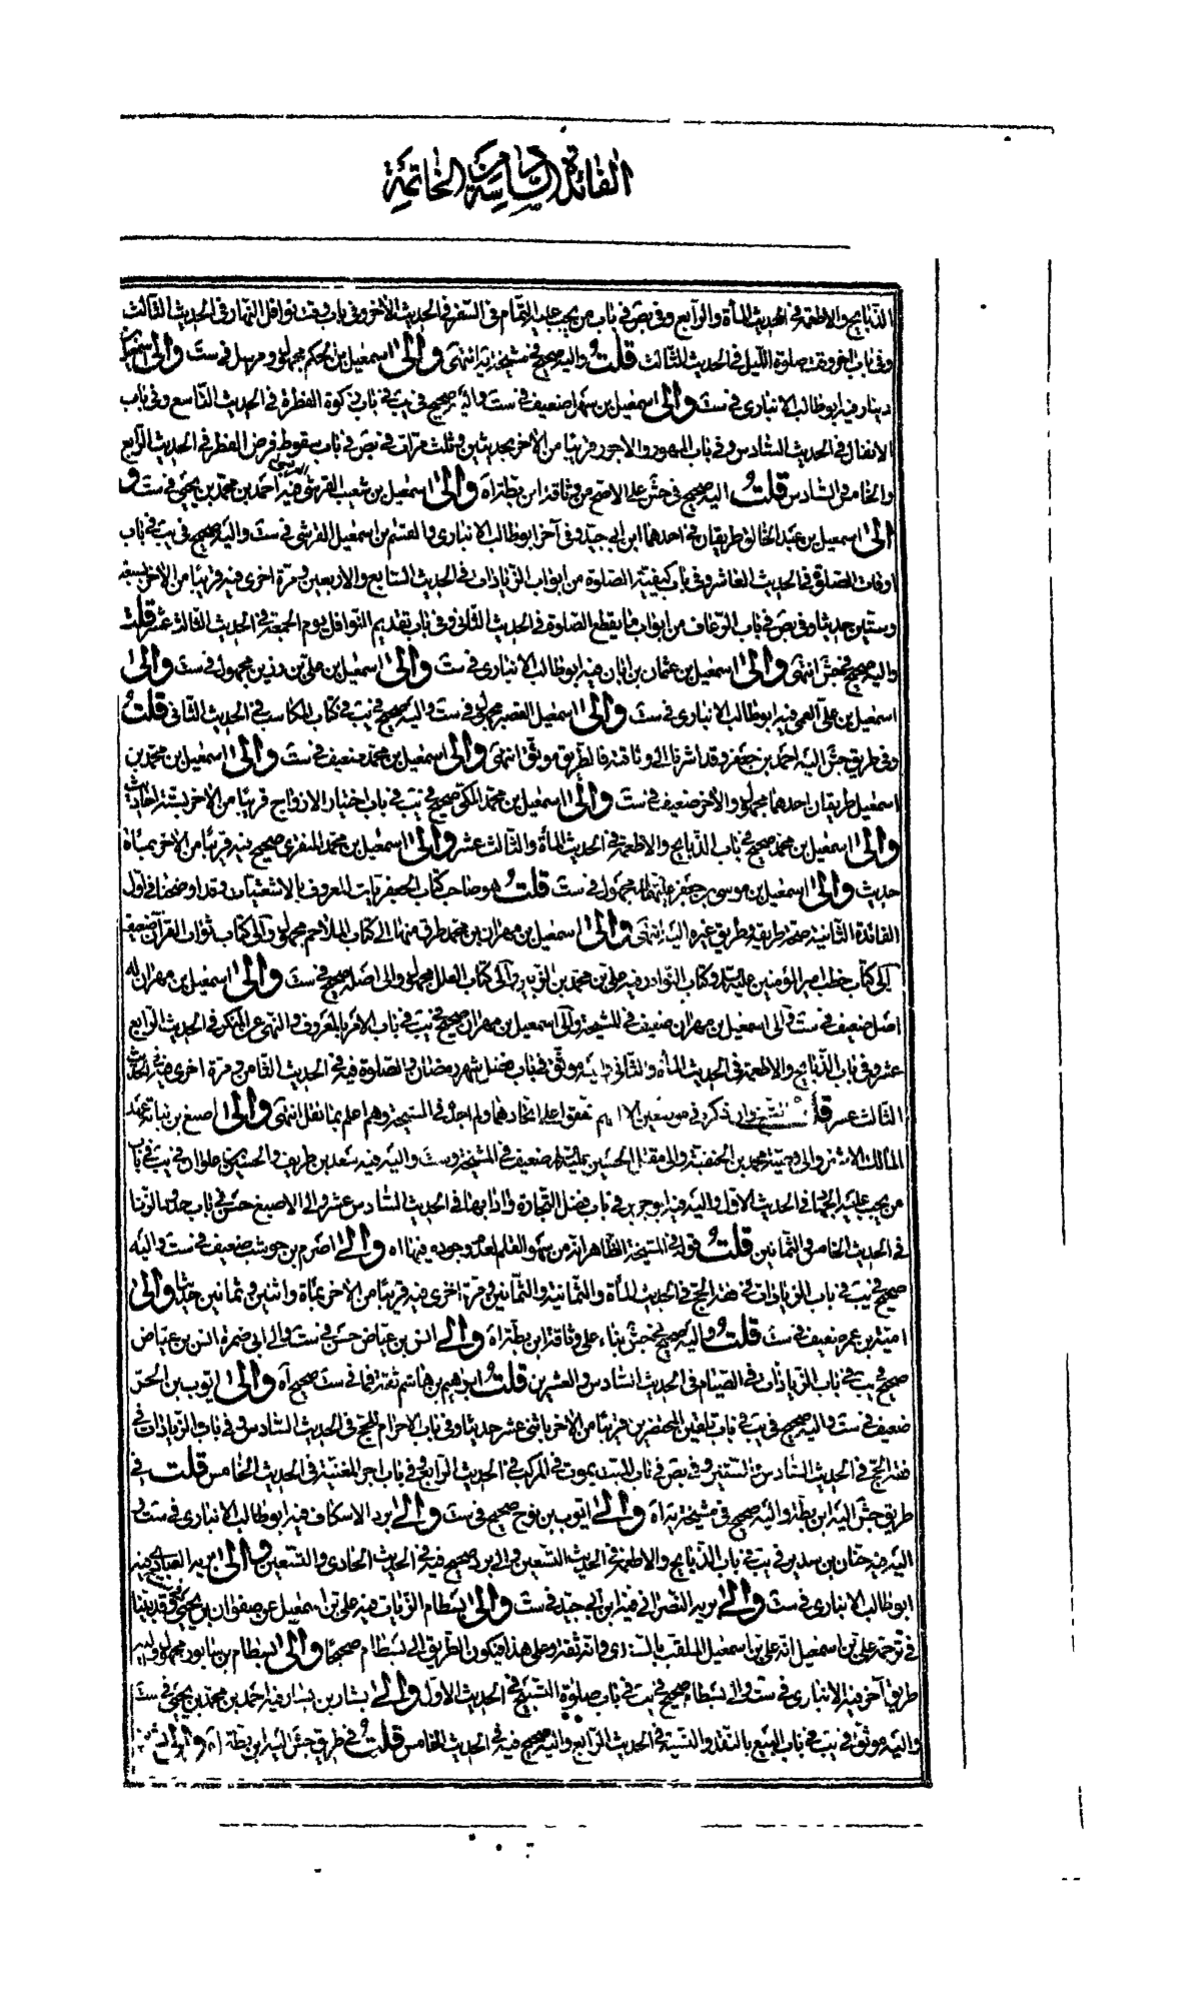 الفائدة السادسة من الخاتمة
الذبايح والاطعمة في الحديث المأة والرابع وفي بص في باب من يجب عليه التمام في السفر في الحديث الأخر وفي باب وقت نوافل النهار في الحديث الثالث
وفي باب اخر وقت صلوة الليل في الحديث الثالث قلت واليه صحيح في مشيخته انتهى والى اسمعيل بن الحكم مجهول ومرسل في ست والى اسمعيل بن
دينار فيه ابو طالب الانباري في ست والى اسمعيل بن سهل ضعيف في ست واليه صحيح في يب في باب زكوة الفطرة في الحديث التاسع وفي باب
الانفال في الحديث السادس وفي باب المهور والاجور قريبا من الأخر بحديثين وثلث مرات في بص في باب سقوط فرض الفطر في الحديث الرابع
والخامس والسادس قلت اليه صحيح في جش على الاصح من وثاقة ابن بطة اه والى اسمعيل بن شعيب القرشي فيه احمد بن محمد بن يحيى في ست و
الى اسمعيل بن عبد الخالق طريقان في احدهما ابن ابي جيد وفي آخر ابو طالب الانباري والقسم بن اسمعيل القرشي في ست واليه صحيح في يب في باب
اوقات الصلوة في الحديث العاشر وفي باب كيفية الصلوة من ابواب الزيادات في الحديث السابع والاربعين ومرة اخرى فيه قريبا من الأخر بسبعة
وستين حديثا وفي بص في باب الرعاف من ابواب ما يقطع الصلوة في الحديث الثاني وفي باب تقديم النوافل يوم الجمعة في الحديث الثالث عشر قلت
واليه صحيح في جش انتهى والى اسمعيل بن عثمان بن ابان فيه ابو طالب الانباري في ست والى اسمعيل بن علي بن رزين مجهول في ست والى
اسمعيل بن علي العمي فيه ابو طالب الانباري في ست والى اسمعيل القصير مجهول في ست واليه صحيح في يب في كتاب المكاسب في الحديث الثاني قلت
وفي طريق جش اليه احمد بن جعفر وقد اشرنا الى وثاقته فالطريق موثق انتهى والى اسمعيل بن محمد ضعيف في ست والى اسمعيل بن محمد بن
اسمعيل طريقان احدهما مجهول والأخر ضعيف في ست والى اسمعيل بن محمد المكي صحيح في يب في باب اختيار الازواج قريبا من الأخر بستة احاديث
والى اسمعيل بن محمد صحيح في باب الذبايح والاطعمة في الحديث المأة والثالث عشر والى اسمعيل بن محمد المنقري صحيح فيه قريبا من الأخر بمأة
حديث والى اسمعيل بن موسى بن جعفر عليهما السلام مجهول في ست قلت هو صاحب كتاب الجعفريات المعروف بالاشعثيات وقد اوضحنا في اول
الفائدة الثانية صحة طريقه وطريق غيره اليه انتهى والى اسمعيل بن مهران بن محمد طرق منها الى كتاب الملاحم مجهول والى كتاب ثواب القرآن ضعيف
الى كتاب خطب امير المؤمنين عليه السلام وكتاب النوادر فيه علي بن محمد بن الزبير والى كتاب العلل مجهول والى اصله صحيح في ست والى اسمعيل بن مهران له
اصل ضعيف في ست والى اسمعيل بن مهران ضعيف في المشيخة والى اسمعيل بن مهران صحيح في يب في باب الامر بالمعروف والنهي عن المنكر في الحديث الرابع
عشر وفي باب الذبايح والاطعمة في الحديث المأة والثاني واليه موثق في باب فضل شهر رمضان والصلوة فيه في الحديث الثامن ومرة اخرى فيه في الحديث
الثالث عشر قلت ذكره في موضعين اتحادهما ولم اجده في المشيخة وهم اعلم بما نقل انتهى والى اصبغ بن نباتة عهد
المالك الاشتر والى وصية محمد بن الحنفية والى مقتل الحسين عليه السلام ضعيف في المشيخة وست واليه فيه سعد بن طريف والحسين بن علوان في يب في باب
من يجب عليه الجهاد في الحديث الاول واليه فيه ابو جرير في باب فضل التجارة وادابها في الحديث السادس عشر والى الاصبغ حسن في باب حدود الزنا
في الحديث الخامس والثمانين قلت قوله في المشيخة الظاهر انه من سهو القلم لعدم وجوده فيها اه والى اصرم بن حوشب ضعيف في ست واليه
صحيح في يب في باب الزيادات في فقه الحج في الحديث المأة والثمانية والثمانين ومرة اخرى فيه قريبا من الأخر بمأة واثنين وثمانين حديثا والى
امية بن عمرو ضعيف في ست قلت واليه صحيح في جش بناء على وثاقة ابن بطة اه والى انس بن عياض حسن في ست والى ابي ضمرة انس بن عياض
صحيح في يب في باب الزيادات في الصيام في الحديث السادس والعشرين قلت ابراهيم بن هاشم ثقة فما في ست صحيح اه والى ايوب بن الحر
ضعيف في ست واليه صحيح في يب في باب تلقين المحتضرين قريبا من الأخر باثنى عشر حديثا وفي باب الاحرام للحج في الحديث السادس وفي باب الزيادات في
فقه الحج في الحديث السادس والستين وفي بص في باب الميت يموت في المركب في الحديث الرابع وفي باب اجر المغنية في الحديث الخامس قلت في
طريق جش اليه ابن بطة واليه صحيح في مشيخته اه والى ايوب بن نوح صحيح في ست والى برد الاسكاف فيه ابو طالب الانباري في ست و
اليه فيه حنان بن سدير في يب في باب الذبايح والاطعمة في الحديث التسعين والى برد صحيح فيه في الحديث الحادي والتسعين والى بريه العبادي فيه
ابو طالب الانباري في ست والى بريه النصراني فيه ابن ابي جيد في ست والى بسطام الزيات فيه علي بن اسمعيل عن صفوان بن يحيى وقد بينا
في ترجمة علي بن اسمعيل انه علي بن اسمعيل الملقب بالسندي وانه ثقة وعلى هذا فيكون الطريق الى بسطام صحيحا والى بسطام بن سابور مجهول واليه
طريق آخر فيه الانباري في ست والى بسطام صحيح في يب في باب صلوة التسبيح في الحديث الاول والى بشار بن يسار فيه احمد بن محمد بن يحيى في ست
واليه موثق في يب في باب البيع بالنقد والنسية في الحديث الرابع واليه صحيح فيه في الحديث الخامس قلت في طريق جش اليه ابن بطة اه والى